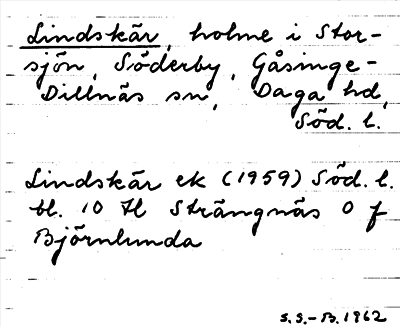 Lindskär, holme i Stor-
sjön, Söderby, Gåsinge-
Dillnäs sn, Daga hd,
Söd. l.
Lindskär ek (1959) Söd. l.
bl. 10 Il Strängnäs O f
Björnlunda
S.S.-B. 1962